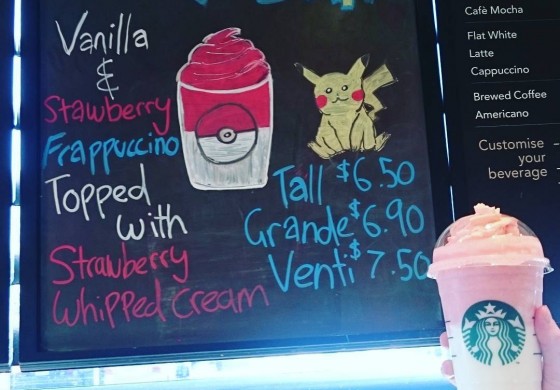 Vanilla
&
Stawberry
Frappuccino
Topped
with
Strawberry
Whipped Cream
Tall $6.50
Grande $6.90
Venti $7.50
Caffè Mocha
Flat White
Latte
Cappuccino
Brewed Coffee
Americano
Customise
your
beverage